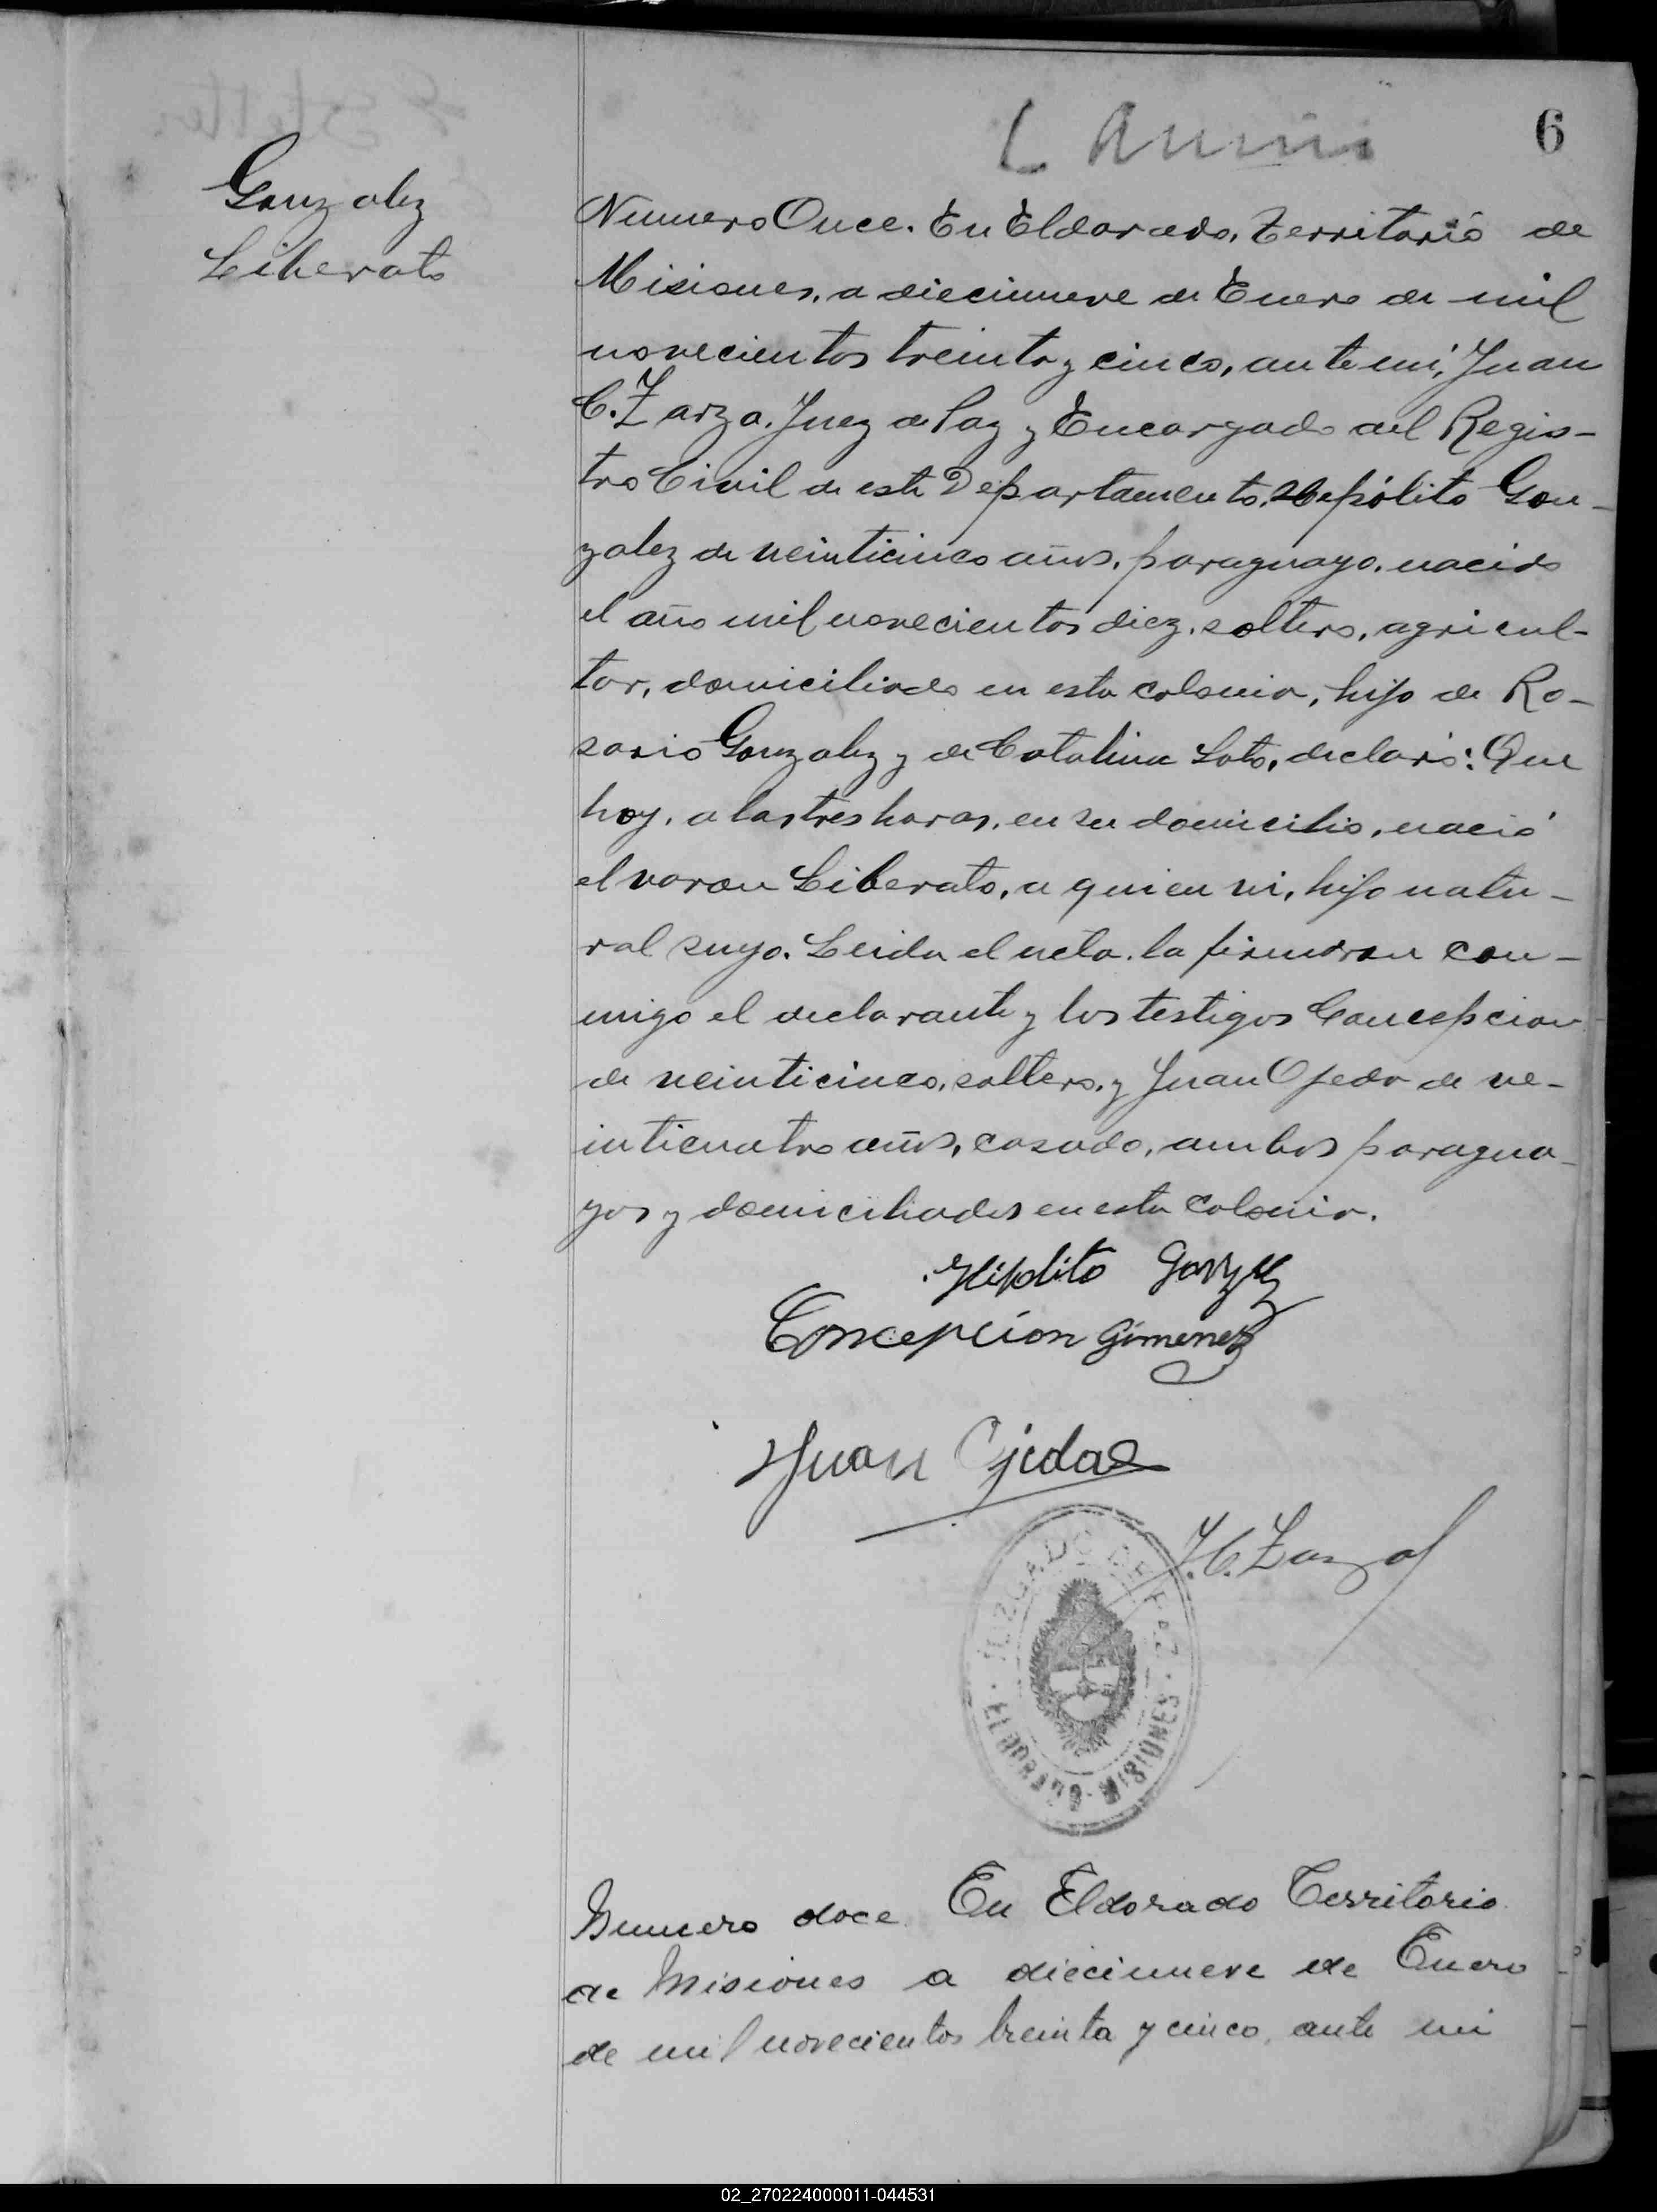 6
Gonzalez
Liberato
Numero Once. En Eldorado, Territorio de
Misiones, a diecinueve de Enero de mil
novecientos treinta y cinco, ante mi, Juan
C. Zarza, Juez de Paz y Encargado del Regis-
tro Civil de este Departamento, Hipólito Gon-
zalez de veinticinco años, paraguayo, nacido
el año mil novecientos diez, soltero, agricul-
tor, domiciliado en esta colonia, hijo de Ro-
sario Gonzalez y de Catalina Soto, declaró: Que
hoy, a las tres horas, en su domicilio, nació
el varon Liberato, a quien vi, hijo natu-
ral suyo. Leida el acta, la firmaron con-
migo el declarante y los testigos Concepcion
de veinticinco, soltero, y Juan Ojeda de ve-
inticuatro años, casado, ambos paragua-
yos y domiciliados en esta colonia.
Hipolito Gonzalez
Concepcion Gimenez
Juan Ojeda
J. C. Zarza
JUZGADO DE PAZ
· ELDORADO - MISIONES ·
Numero doce. En Eldorado Territorio
de Misiones a diecinueve de Enero
de mil novecientos treinta y cinco, ante mi
02_270224000011-044531